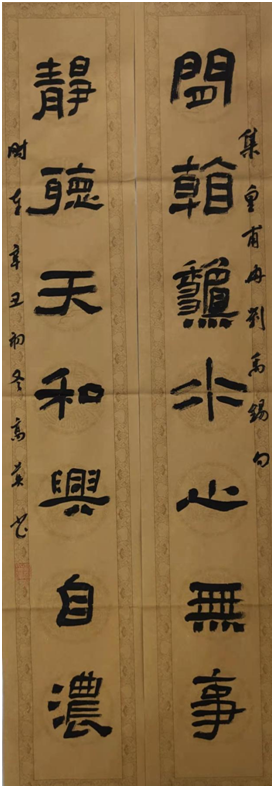 集皇甫冉劉禹錫句
閒看龝水心無事
靜聽天和興自濃
時在辛丑初冬高書